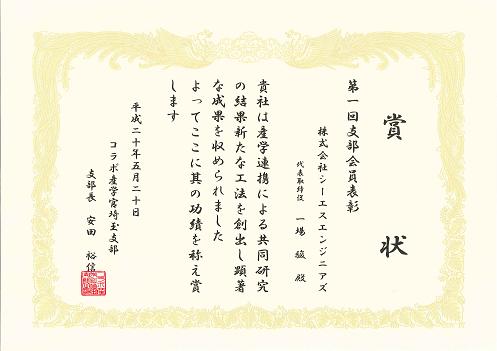 賞状
第一回支部会員表彰
株式会社シーエスエンジニアズ
代表取締役 一場 駿 殿
貴社は産学連携による共同研究
の結果新たな工法を創出し顕著
な成果を収められました
よってここに其の功績を称え賞
します
平成二十年五月二十日
コラボ産学官埼玉支部
支部長 安田 裕信